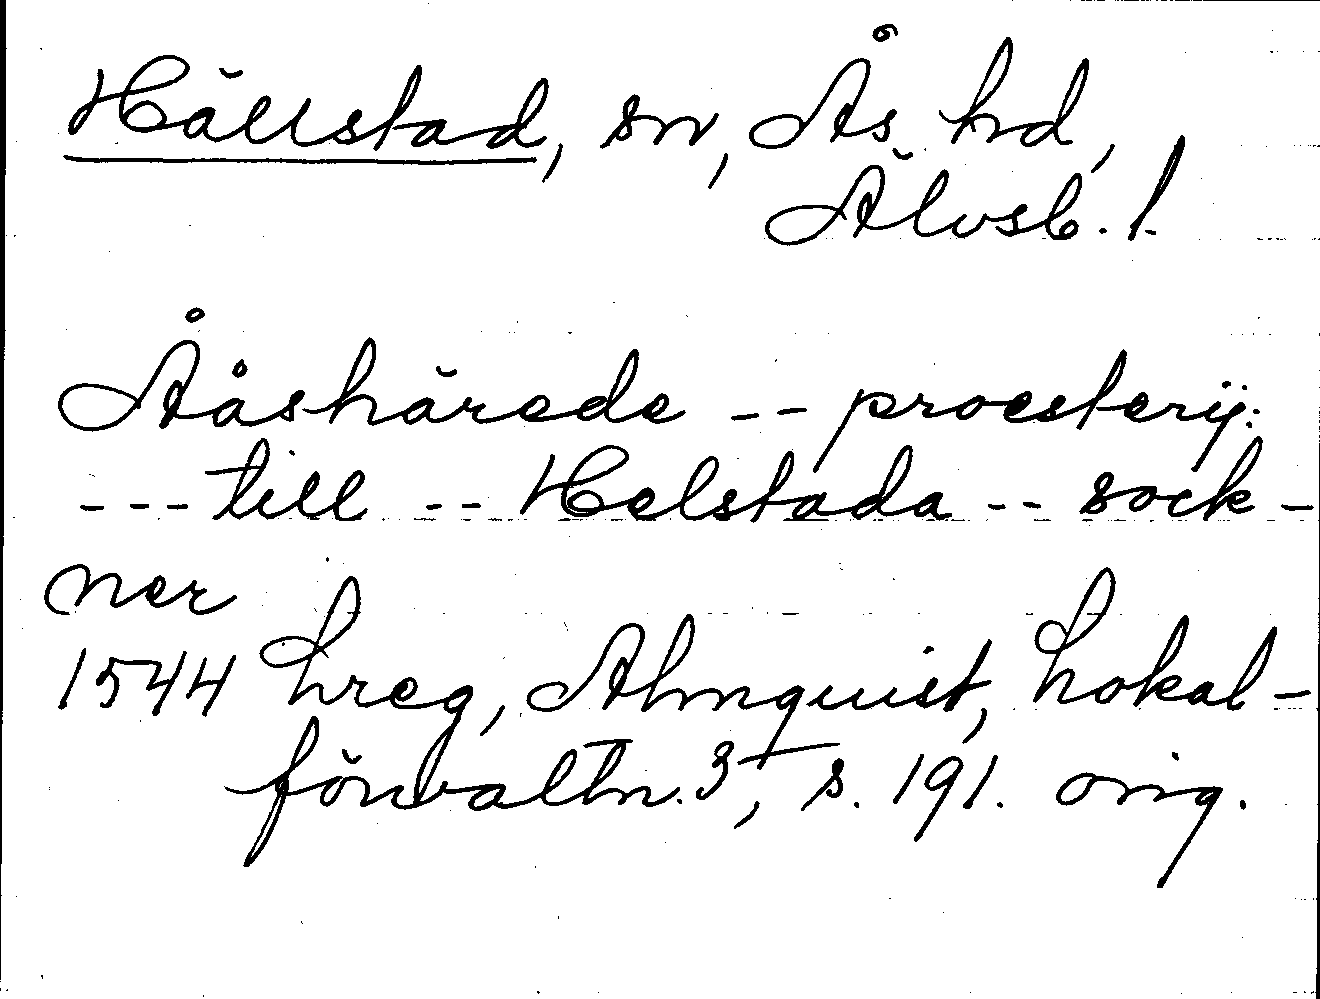 Hällstad, sn, Ås hd,
Älvsb. l.
Ååshärede -- proesterij:
--- till -- Helstada -- sock-
ner
1544 Lreg, Almquist, Lokal-
förvaltn. 3, s. 191. orig.